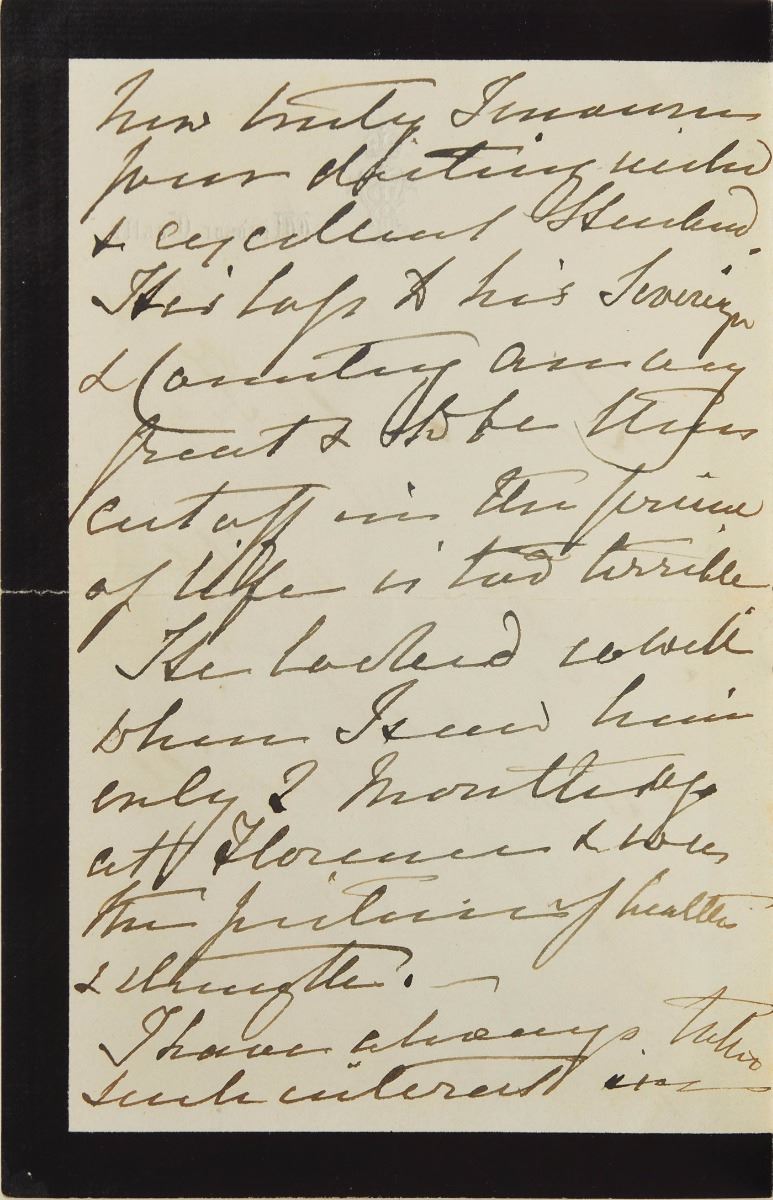 how truly I mourn
your distinguished
& excellent Husband.
His loss to his Sovereign
& Country am very
great & to be thus
cut off in the prime
of life is too terrible
He looked so well
when I saw him
only 2 months ago
at Florence & was
the picture of health
& strength. —
I have always taken
such interest in